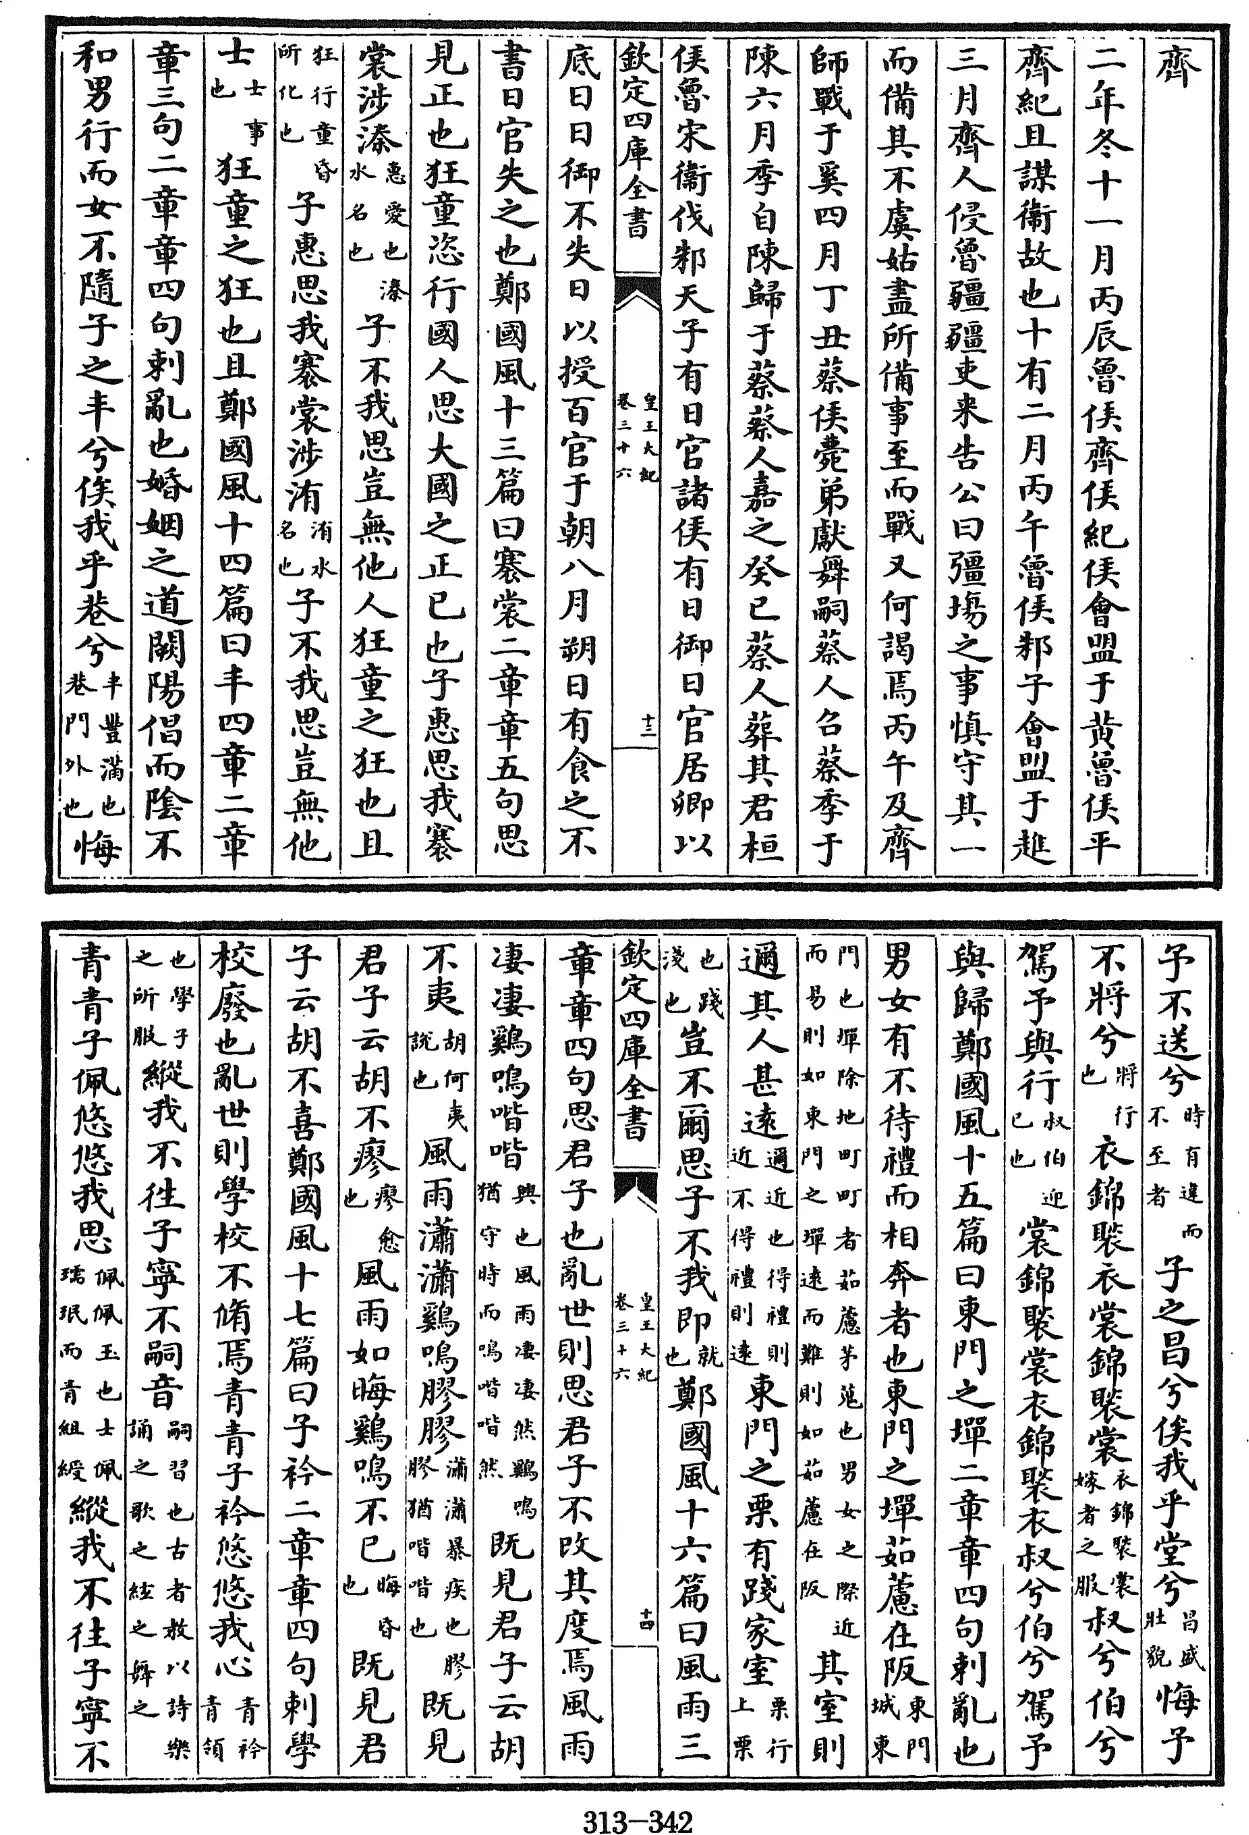 齊
二年冬十一月丙辰魯侯齊侯紀侯會盟于黃魯侯平
齊紀且謀衞故也十有二月丙午魯侯邾子會盟于趡
三月齊人侵魯疆疆吏来告公曰疆埸之事慎守其一
而備其不虞姑盡所備事至而戰又何謁焉丙午及齊
師戰于奚四月丁丑蔡侯薨弟獻舞嗣蔡人召蔡季于
陳六月季自陳歸于蔡蔡人嘉之癸巳蔡人葬其君桓
侯魯宋衞伐邾天子有日官諸侯有日御日官居卿以
欽定四庫全書 皇王大紀卷三十六 十三
底日日御不失日以授百官于朝八月朔日有食之不
書日官失之也鄭國風十三篇曰褰裳二章章五句思
見正也狂童恣行國人思大國之正已也子惠思我褰
裳涉溱惠愛也溱水名也子不我思豈無他人狂童之狂也且
狂行童昏所化也子惠思我褰裳涉洧洧水名也子不我思豈無他
士士事也狂童之狂也且鄭國風十四篇曰丰四章二章
章三句二章章四句刺亂也婚姻之道闕陽倡而陰不
和男行而女不隨子之丰兮俟我乎巷兮丰豐滿也巷門外也悔
予不送兮時有違而不至者子之昌兮俟我乎堂兮昌盛壯貌悔予
不將兮將行也衣錦褧衣裳錦褧裳衣錦褧裳嫁者之服叔兮伯兮
駕予與行叔伯迎已也裳錦褧裳衣錦褧衣叔兮伯兮駕予
與歸鄭國風十五篇曰東門之墠二章章四句刺亂也
男女有不待禮而相奔者也東門之墠茹藘在阪東門城東
門也墠除地町町者茹藘茅蒐也男女之際近而易則如東門之墠遠而難則如茹藘在阪其室則
邇其人甚遠邇近也得禮則近不得禮則遠東門之栗有踐家室栗行上栗
也踐淺也豈不爾思子不我即就也鄭國風十六篇曰風雨三
欽定四庫全書 皇王大紀卷三十六 十四
章章四句思君子也亂世則思君子不改其度焉風雨
凄凄鷄鳴喈喈興也風雨凄凄然鷄鳴猶守時而鳴喈喈然既見君子云胡
不夷胡何夷說也風雨瀟瀟鷄鳴膠膠瀟瀟暴疾也膠膠猶喈喈也既見
君子云胡不瘳瘳愈也風雨如晦鷄鳴不已晦昏也既見君
子云胡不喜鄭國風十七篇曰子衿二章章四句刺學
校廢也亂世則學校不脩焉青青子衿悠悠我心青衿青領
也學子之所服縱我不徃子寧不嗣音嗣習也古者教以詩樂誦之歌之絃之舞之
青青子佩悠悠我思佩佩玉也士佩瓀珉而青組綬縱我不往子寧不
313-342